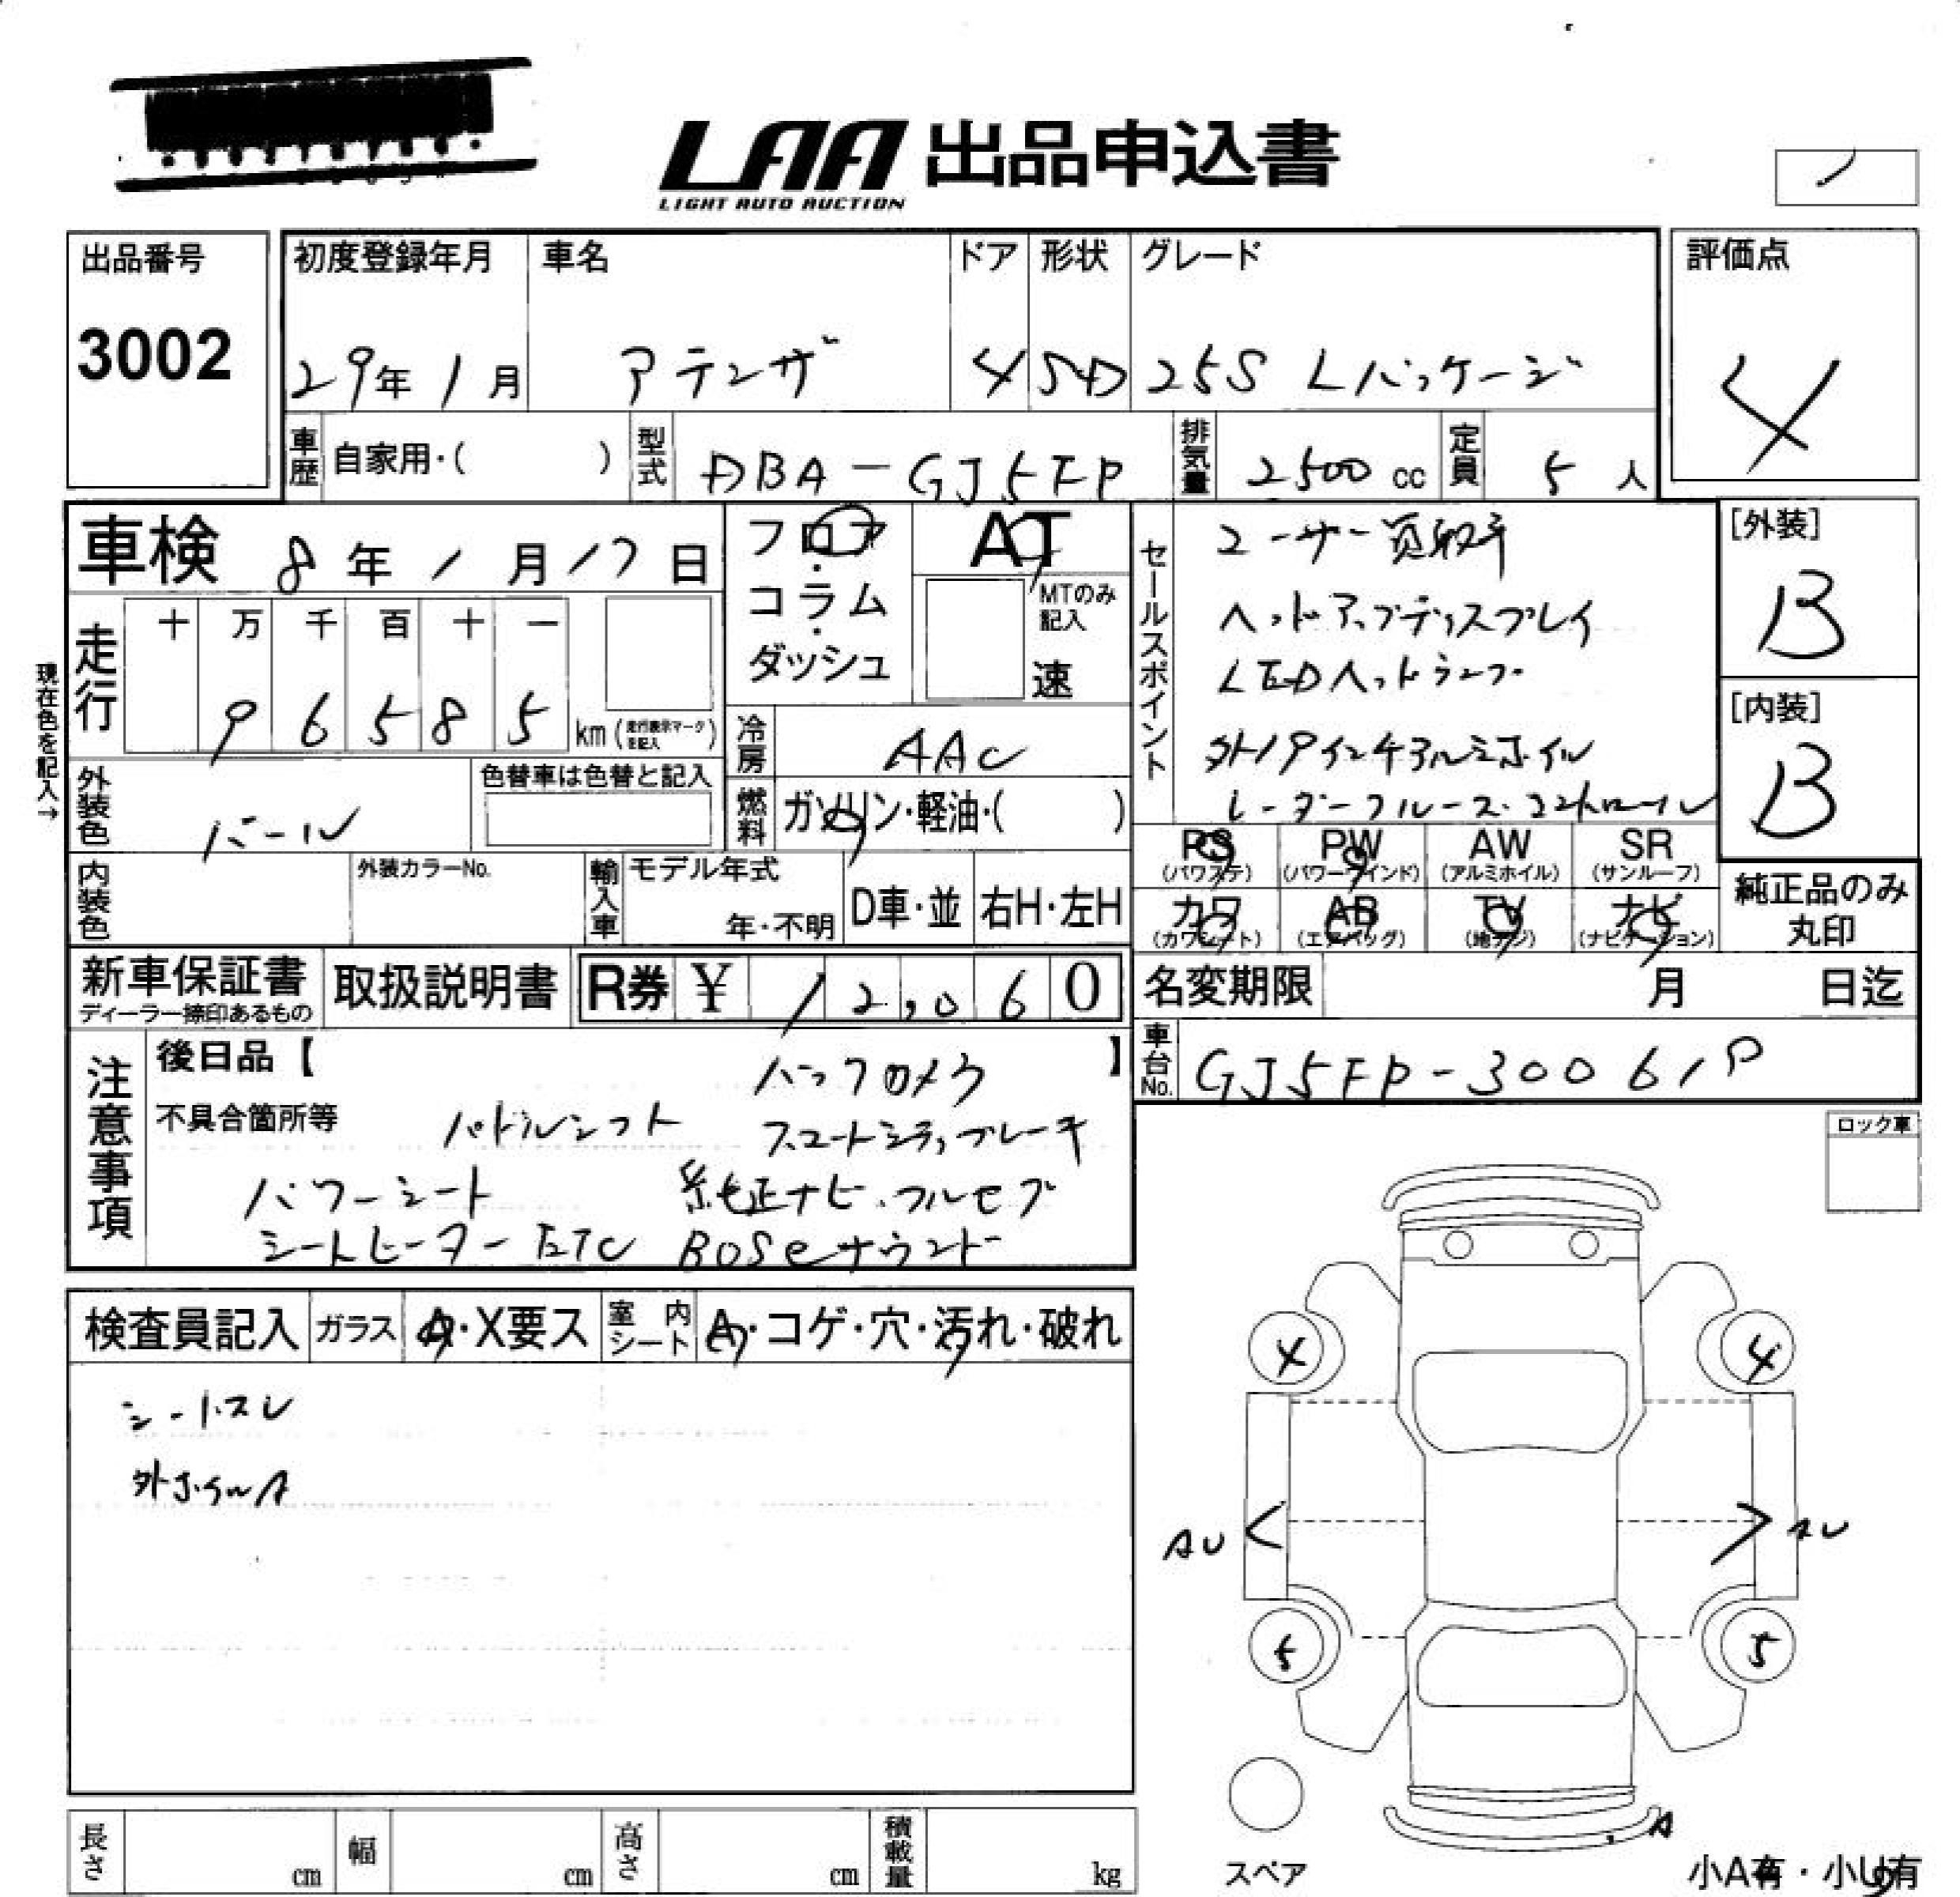 LAA 出品申込書
LIGHT AUTO AUCTION
出品番号
3002
初度登録年月
29年1月
車名
アテンザ
ドア
4
形状
SD
グレード
25S Lパッケージ
評価点
4
車歴 自家用・( )
型式 DBA-GJ5FP
排気量 2500 cc
定員 5 人
車検 8年1月17日
フロア・コラム・ダッシュ
AT
MTのみ記入
速
セールスポイント
ユーザー買取車
ヘッドアップディスプレイ
LEDヘットランプ
外19インチアルミホイル
レーダークルーズ.コントロール
[外装]
B
[内装]
B
走行
十 万 千 百 十 一
9 6 5 8 5 km (走行表示マークを記入)
現在色を記入→
冷房 AAC
燃料 ガソリン・軽油・( )
外装色 パール
色替車は色替と記入
内装色
外装カラーNo.
輸入車 モデル年式
年・不明
D車・並
右H・左H
PS (パワステ)
PW (パワーウインド)
AW (アルミホイル)
SR (サンルーフ)
カワ (カワシート)
AB (エアバッグ)
TV (地デジ)
ナビ (ナビゲーション)
純正品のみ
丸印
新車保証書
ディーラー捺印あるもの
取扱説明書
R券 ¥ 12,060
名変期限 月 日迄
車台No. GJ5FP-300619
注意事項
後日品【 】
バックカメラ
不具合箇所等
パドルシフト スマートシティブレーキ
パワーシート 純正ナビ.フルセグ
シートヒーター ETC BOSeサウンド
ロック車
検査員記入
ガラス A・X要ス
室内シート A・コゲ・穴・汚れ・破れ
シートスレ
外ホイルA
4 4
AU AU
5 5
A
スペア
小A有・小U有
長さ cm
幅 cm
高さ cm
積載量 kg